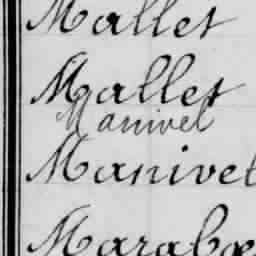 Mallet
Mallet
Manivel
Manivet